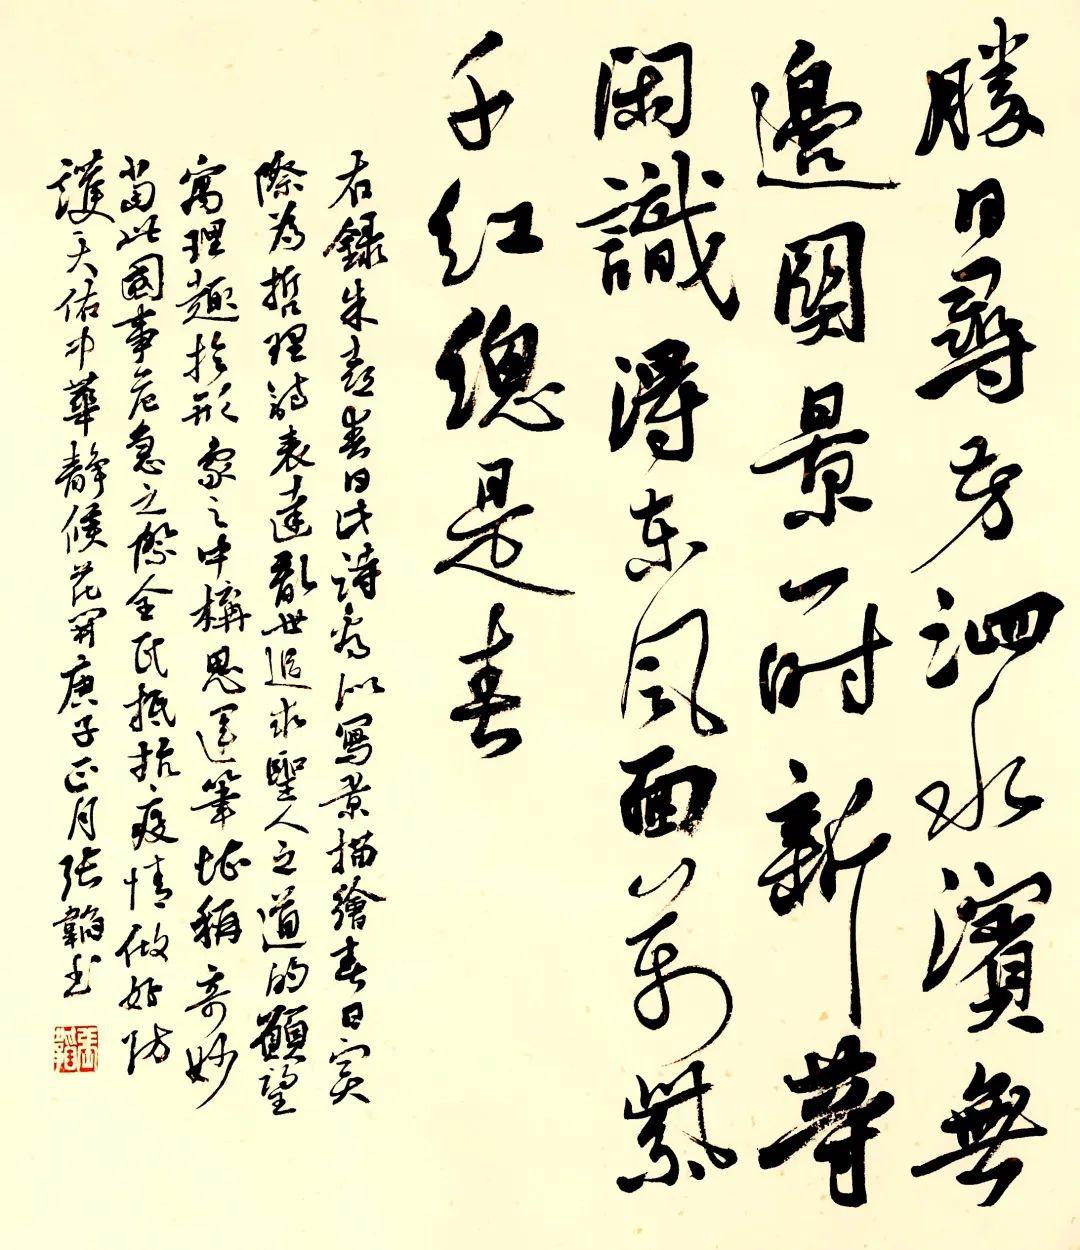 勝日尋芳泗水濱無
邊関景一時新等
閑識得東風面萬紫
千紅總是春
右錄朱熹春日此詩看似寫景描繪春日實
際為哲理詩表達亂世追求聖人之道的願望
寓理趣於形象之中構思運筆堪稱奇妙
當此國事危急之際全民抵抗疫情做好防
護天佑中華靜候花開庚子正月張韜書
張韜